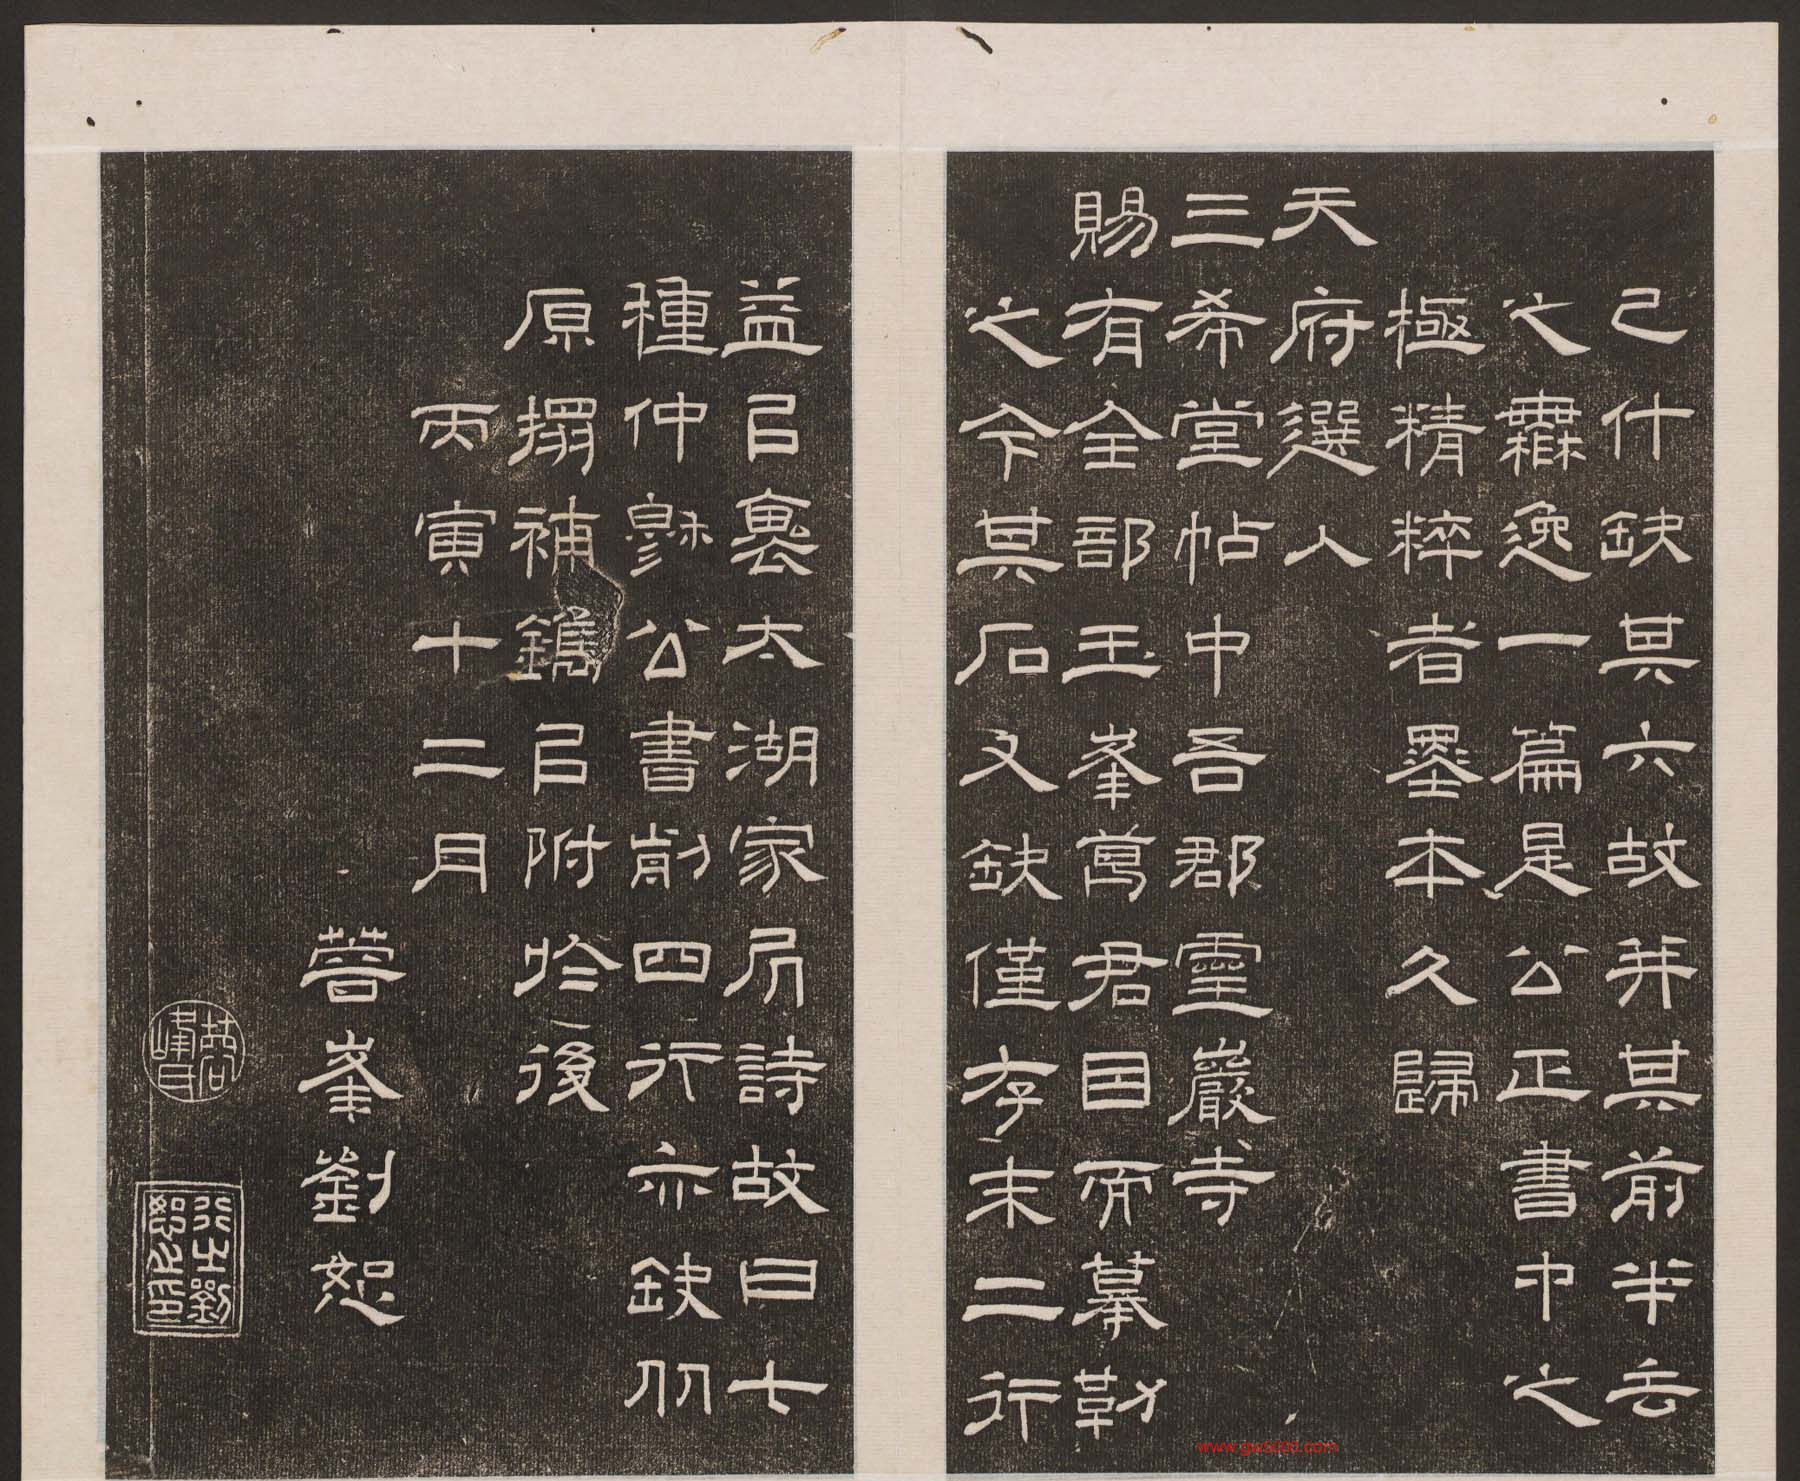 已什缺其六故并其前半去
之無逸一篇是公正書中之
極精粹者墨本久歸
天府選入
三希堂帖中吾郡靈巖寺
賜有全部玉峯萬君因而摹勒
之今其石又缺僅存末二行
益㠯裏太湖家凥詩故曰七
種仲穆公書前四行亦缺仍
原搨補鐫㠯附於後
丙寅十二月
蓉峯劉恕